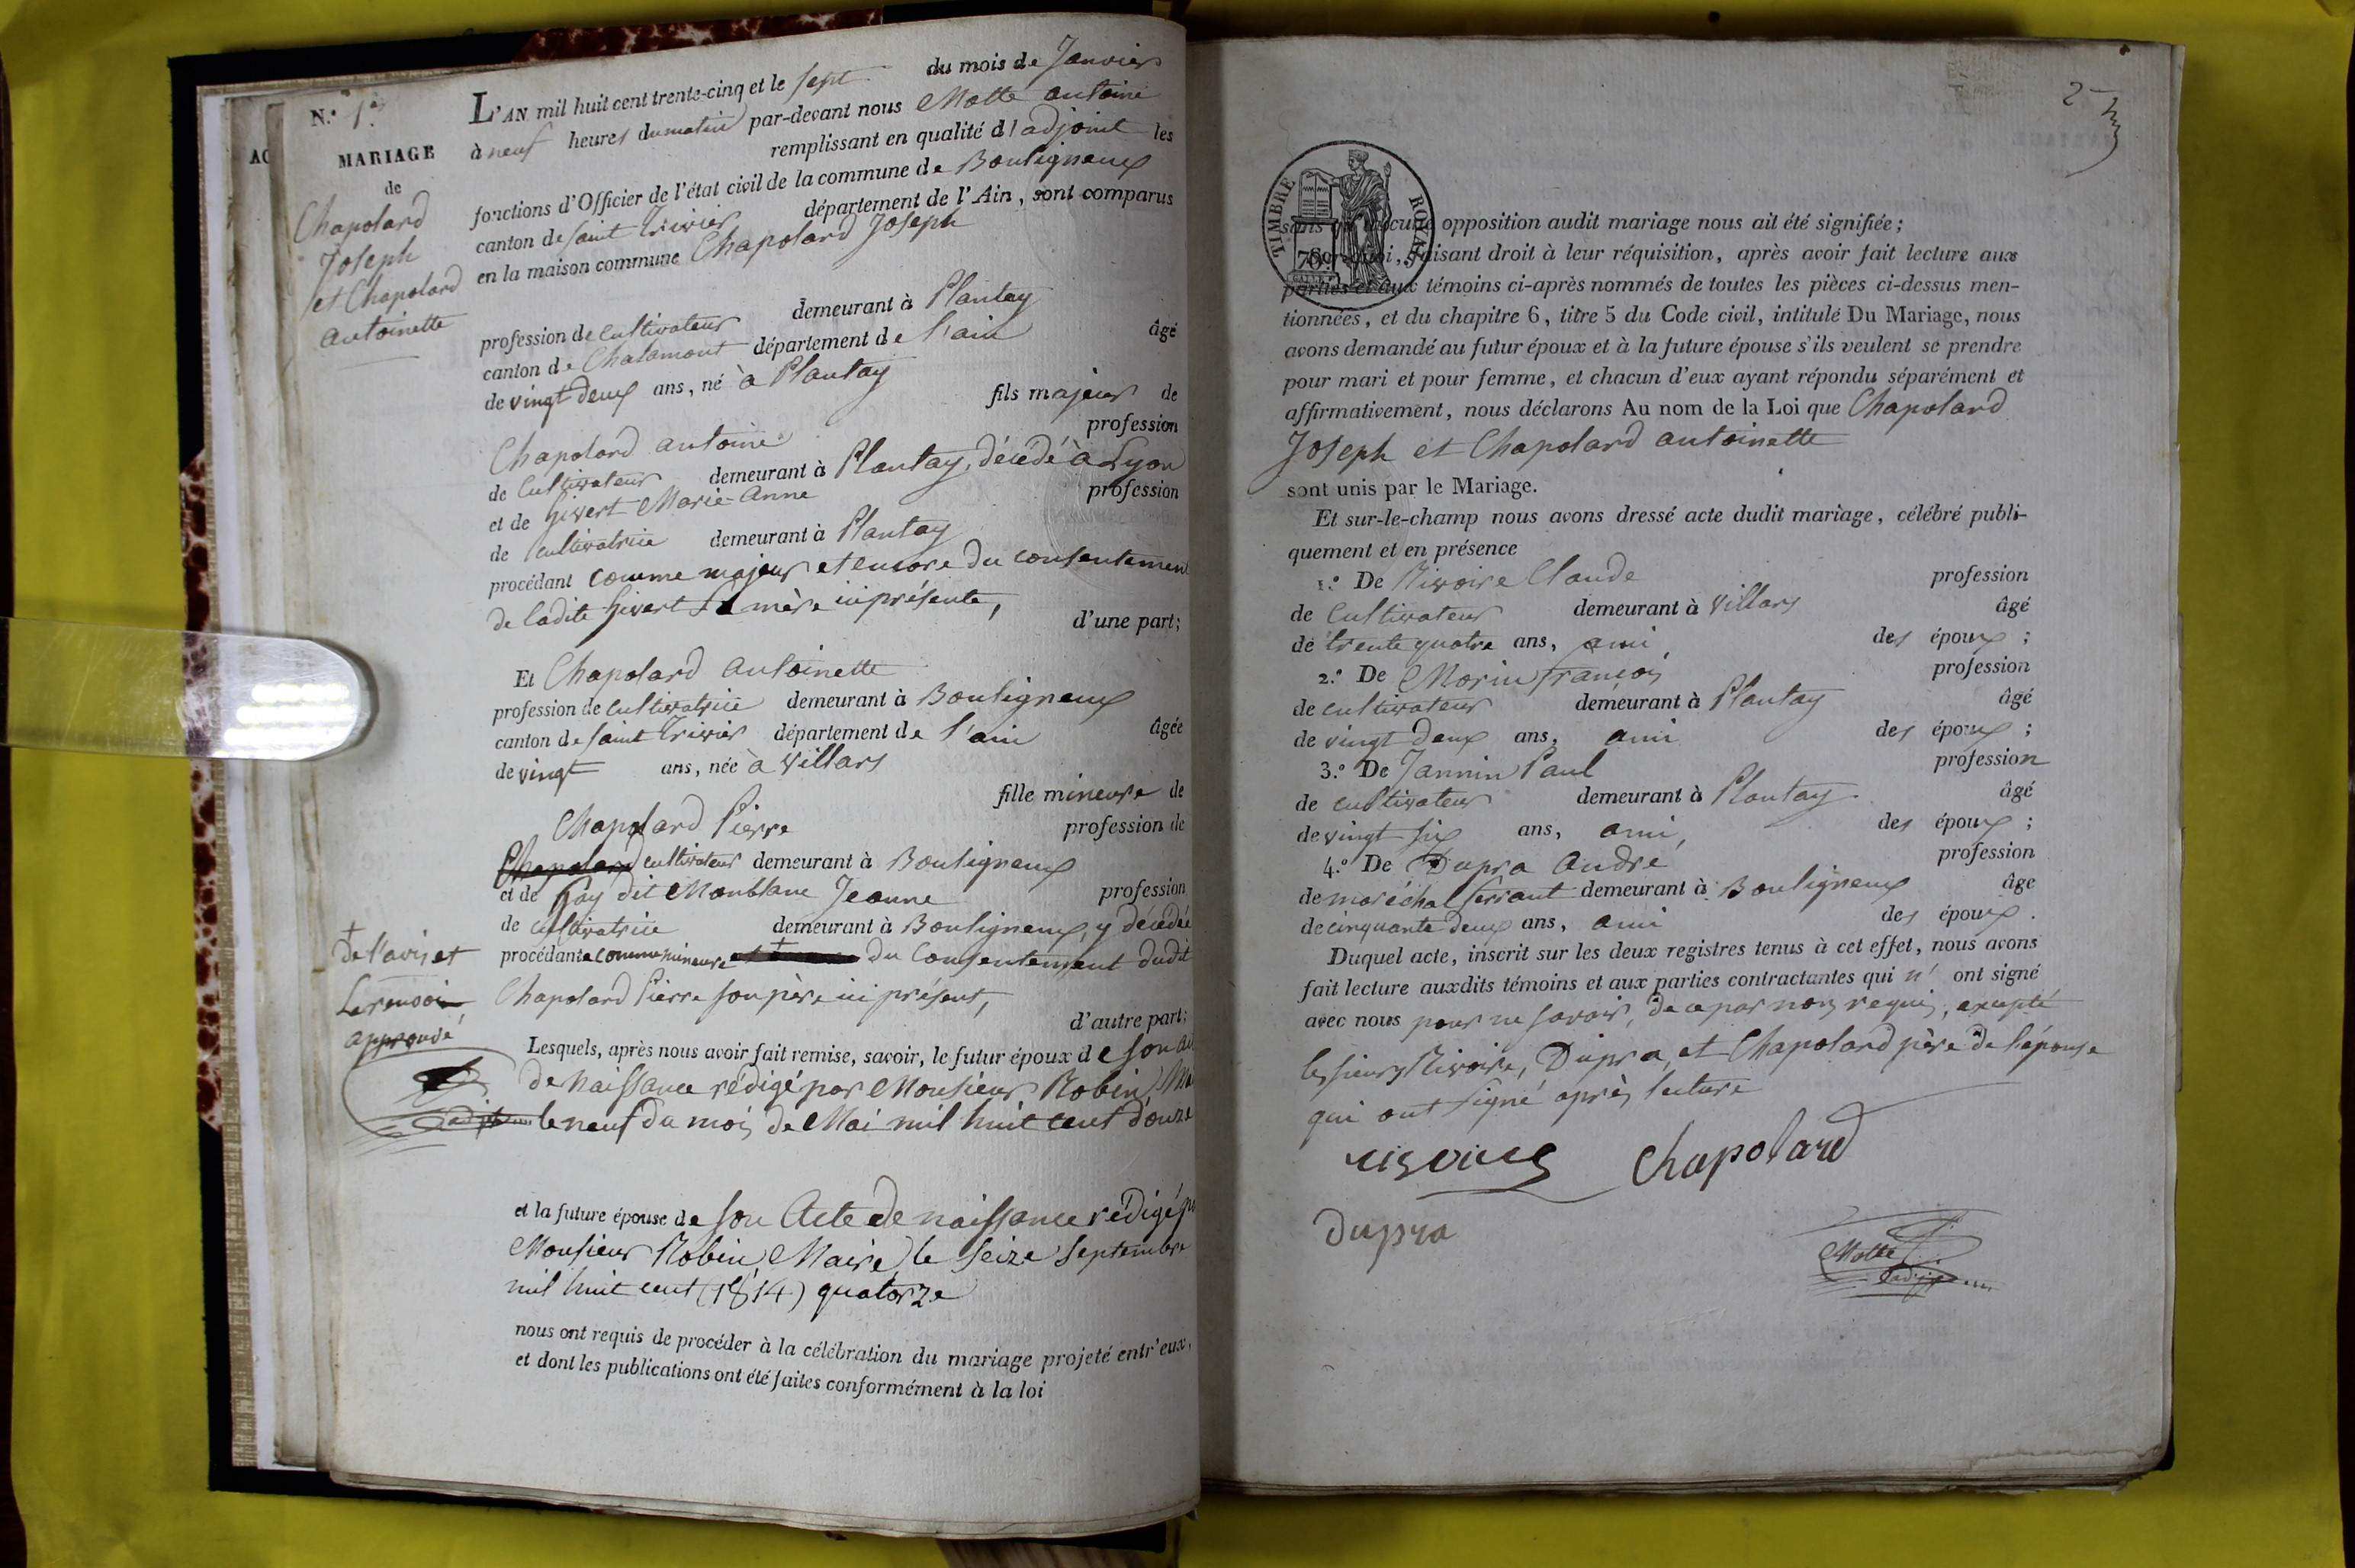 N.° 1.er
MARIAGE
de
Chapolard
Joseph
et Chapolard
antoinette
L'AN mil huit cent trente-cinq et le sept du mois de Janvier
à neuf heures du matin par-devant nous Motte antoine
remplissant en qualité d'adjoint les
fonctions d'Officier de l'état civil de la commune de Bouligneux
canton de saint trivier département de l'Ain, sont comparus
en la maison commune Chapolard Joseph
profession de cultivateur demeurant à Plantay
canton de Chalamont département de l'ain âgé
de vingt deux ans, né à Plantay
fils majeur de
Chapolard antoine profession
de Cultivateur demeurant à Plantay, décédé à Lyon
et de Givert Marie-Anne profession
de cultivatrice demeurant à Plantay
procédant comme majeur et encore du consentement
de ladite Givert sa mère ici présente,
d'une part;
Et Chapolard antoinette
profession de cultivatrice demeurant à Bouligneux
canton de saint Trivier département de l'ain âgée
de vingt ans, née à Villars
fille mineure de
Chapolard Pierre profession de
Chapolard cultivateur demeurant à Bouligneux
et de Gay dit Monblanc Jeanne profession
de cultivatrice demeurant à Bouligneux, y décédée
procédante comme mineure + du Consentement dudit
Chapolard Pierre son père ici présent,
d'autre part;
+ De l'avis et
Le renvoi
approuvé
adjt
Lesquels, après nous avoir fait remise, savoir, le futur époux de son
de naissance rédigé par Monsieur Robin
le neuf du mois de Mai mil huit cent douze
et la future épouse de son Acte de naissance rédigé
Monsieur Robin, Maire, le seize Septembre
mil huit cent (1814) quatorze
nous ont requis de procéder à la célébration du mariage projeté entr'eux,
et dont les publications ont été faites conformément à la loi
2
TIMBRE ROYAL
sans qu'aucune opposition audit mariage nous ait été signifiée;
70.c
quoi, faisant droit à leur réquisition, après avoir fait lecture aux
parties et aux témoins ci-après nommés de toutes les pièces ci-dessus men-
tionnées, et du chapitre 6, titre 5 du Code civil, intitulé Du Mariage, nous
avons demandé au futur époux et à la future épouse s'ils veulent se prendre
pour mari et pour femme, et chacun d'eux ayant répondu séparément et
affirmativement, nous déclarons Au nom de la Loi que Chapolard
Joseph et Chapolard antoinette
sont unis par le Mariage.
Et sur-le-champ nous avons dressé acte dudit mariage, célébré publi-
quement et en présence
1.° De Rivoire Claude profession
de Cultivateur demeurant à Villars âgé
de trente quatre ans, ami des époux;
2.° De Morin françois profession
de cultivateur demeurant à Plantay âgé
de vingt deux ans, ami des époux;
3.° De Jannin Paul profession
de cultivateur demeurant à Plantay. âgé
de vingt six ans, ami, des époux;
4.° De Dupra André profession
de maréchal ferrant demeurant à Bouligneux âge
de cinquante deux ans, ami des époux.
Duquel acte, inscrit sur les deux registres tenus à cet effet, nous avons
fait lecture auxdits témoins et aux parties contractantes qui n' ont signé
avec nous pour ne savoir, de ce par nous requis, excepté
les sieurs Rivoire, Dupra, et Chapolard père de l'épouse
qui ont signé après lecture
rivoire Chapolard
Dupra
Motte
adjt